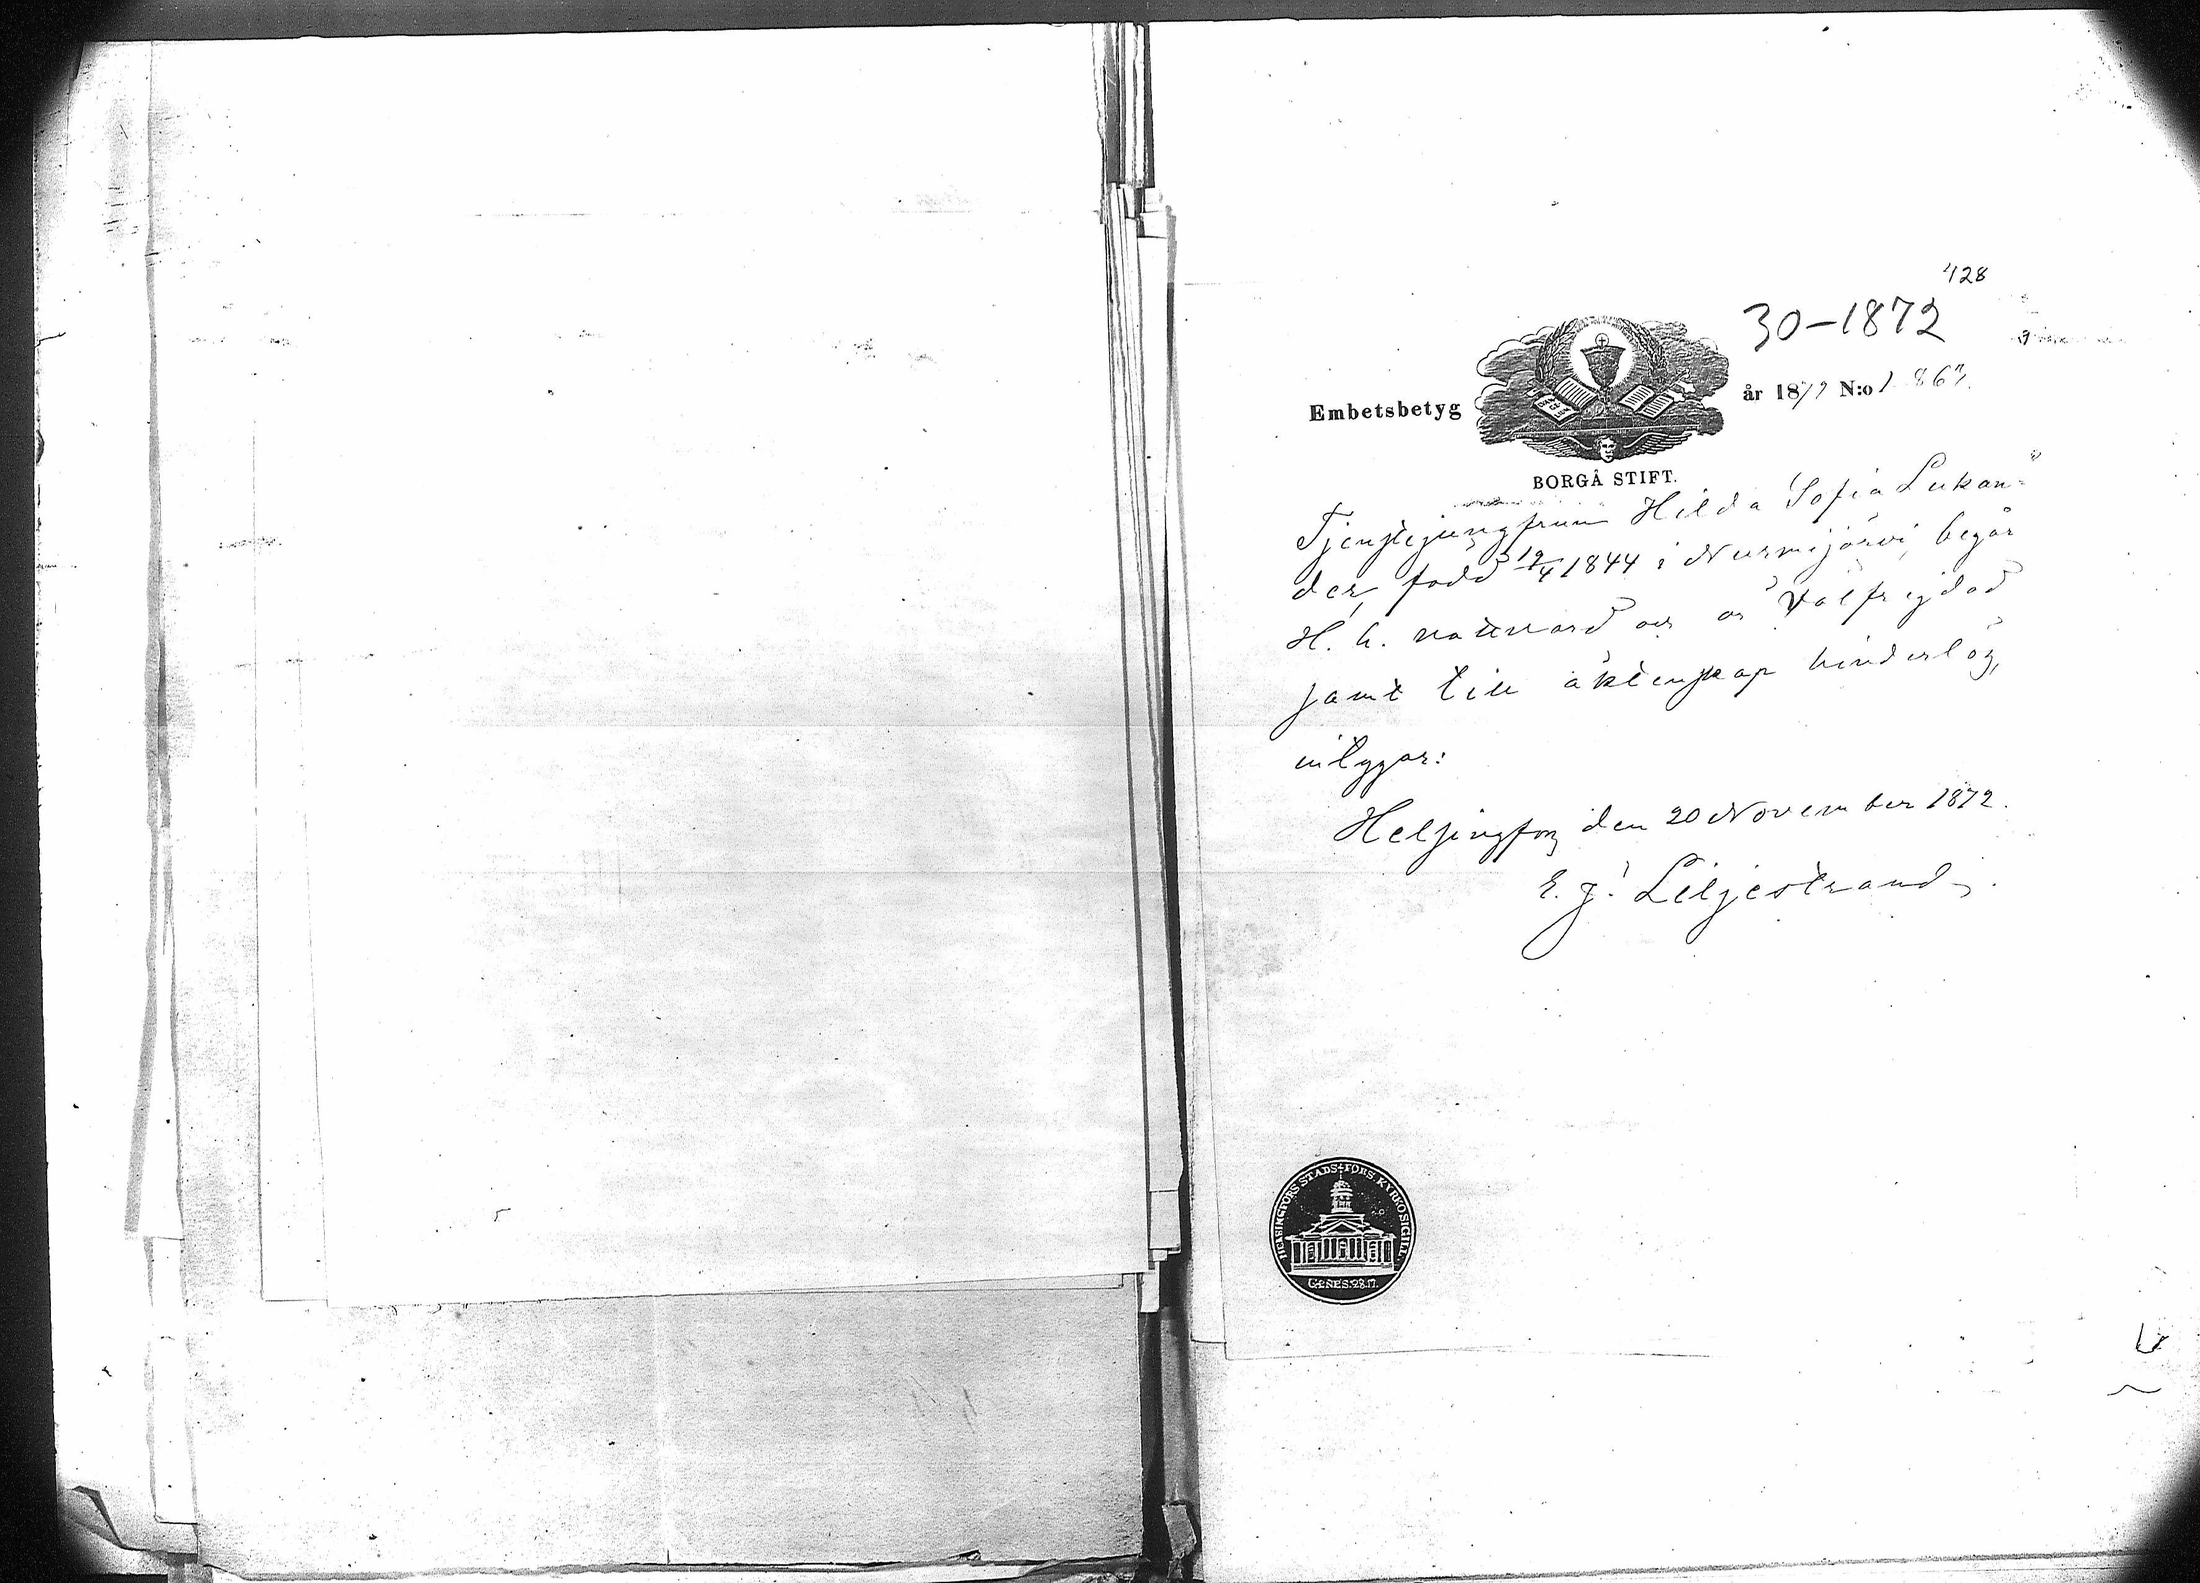 128
30-1872
Embetsbetyg
år 1872 N:o 1867.
BORGÅ STIFT.
Tjenstejungfrun Hilda Sofia Lukan-
der, född 19/4 1844 i Nurmijärvi, begår
H. h. nattvard och är välfrejdad
samt till äktenskap hinderlös,
intygar:
Helsingfors den 20 November 1872.
E. J. Liljestrand.
HELSINGFORS STADS-FÖRS: KYRKOSIGILL.
GENES. 28.17.